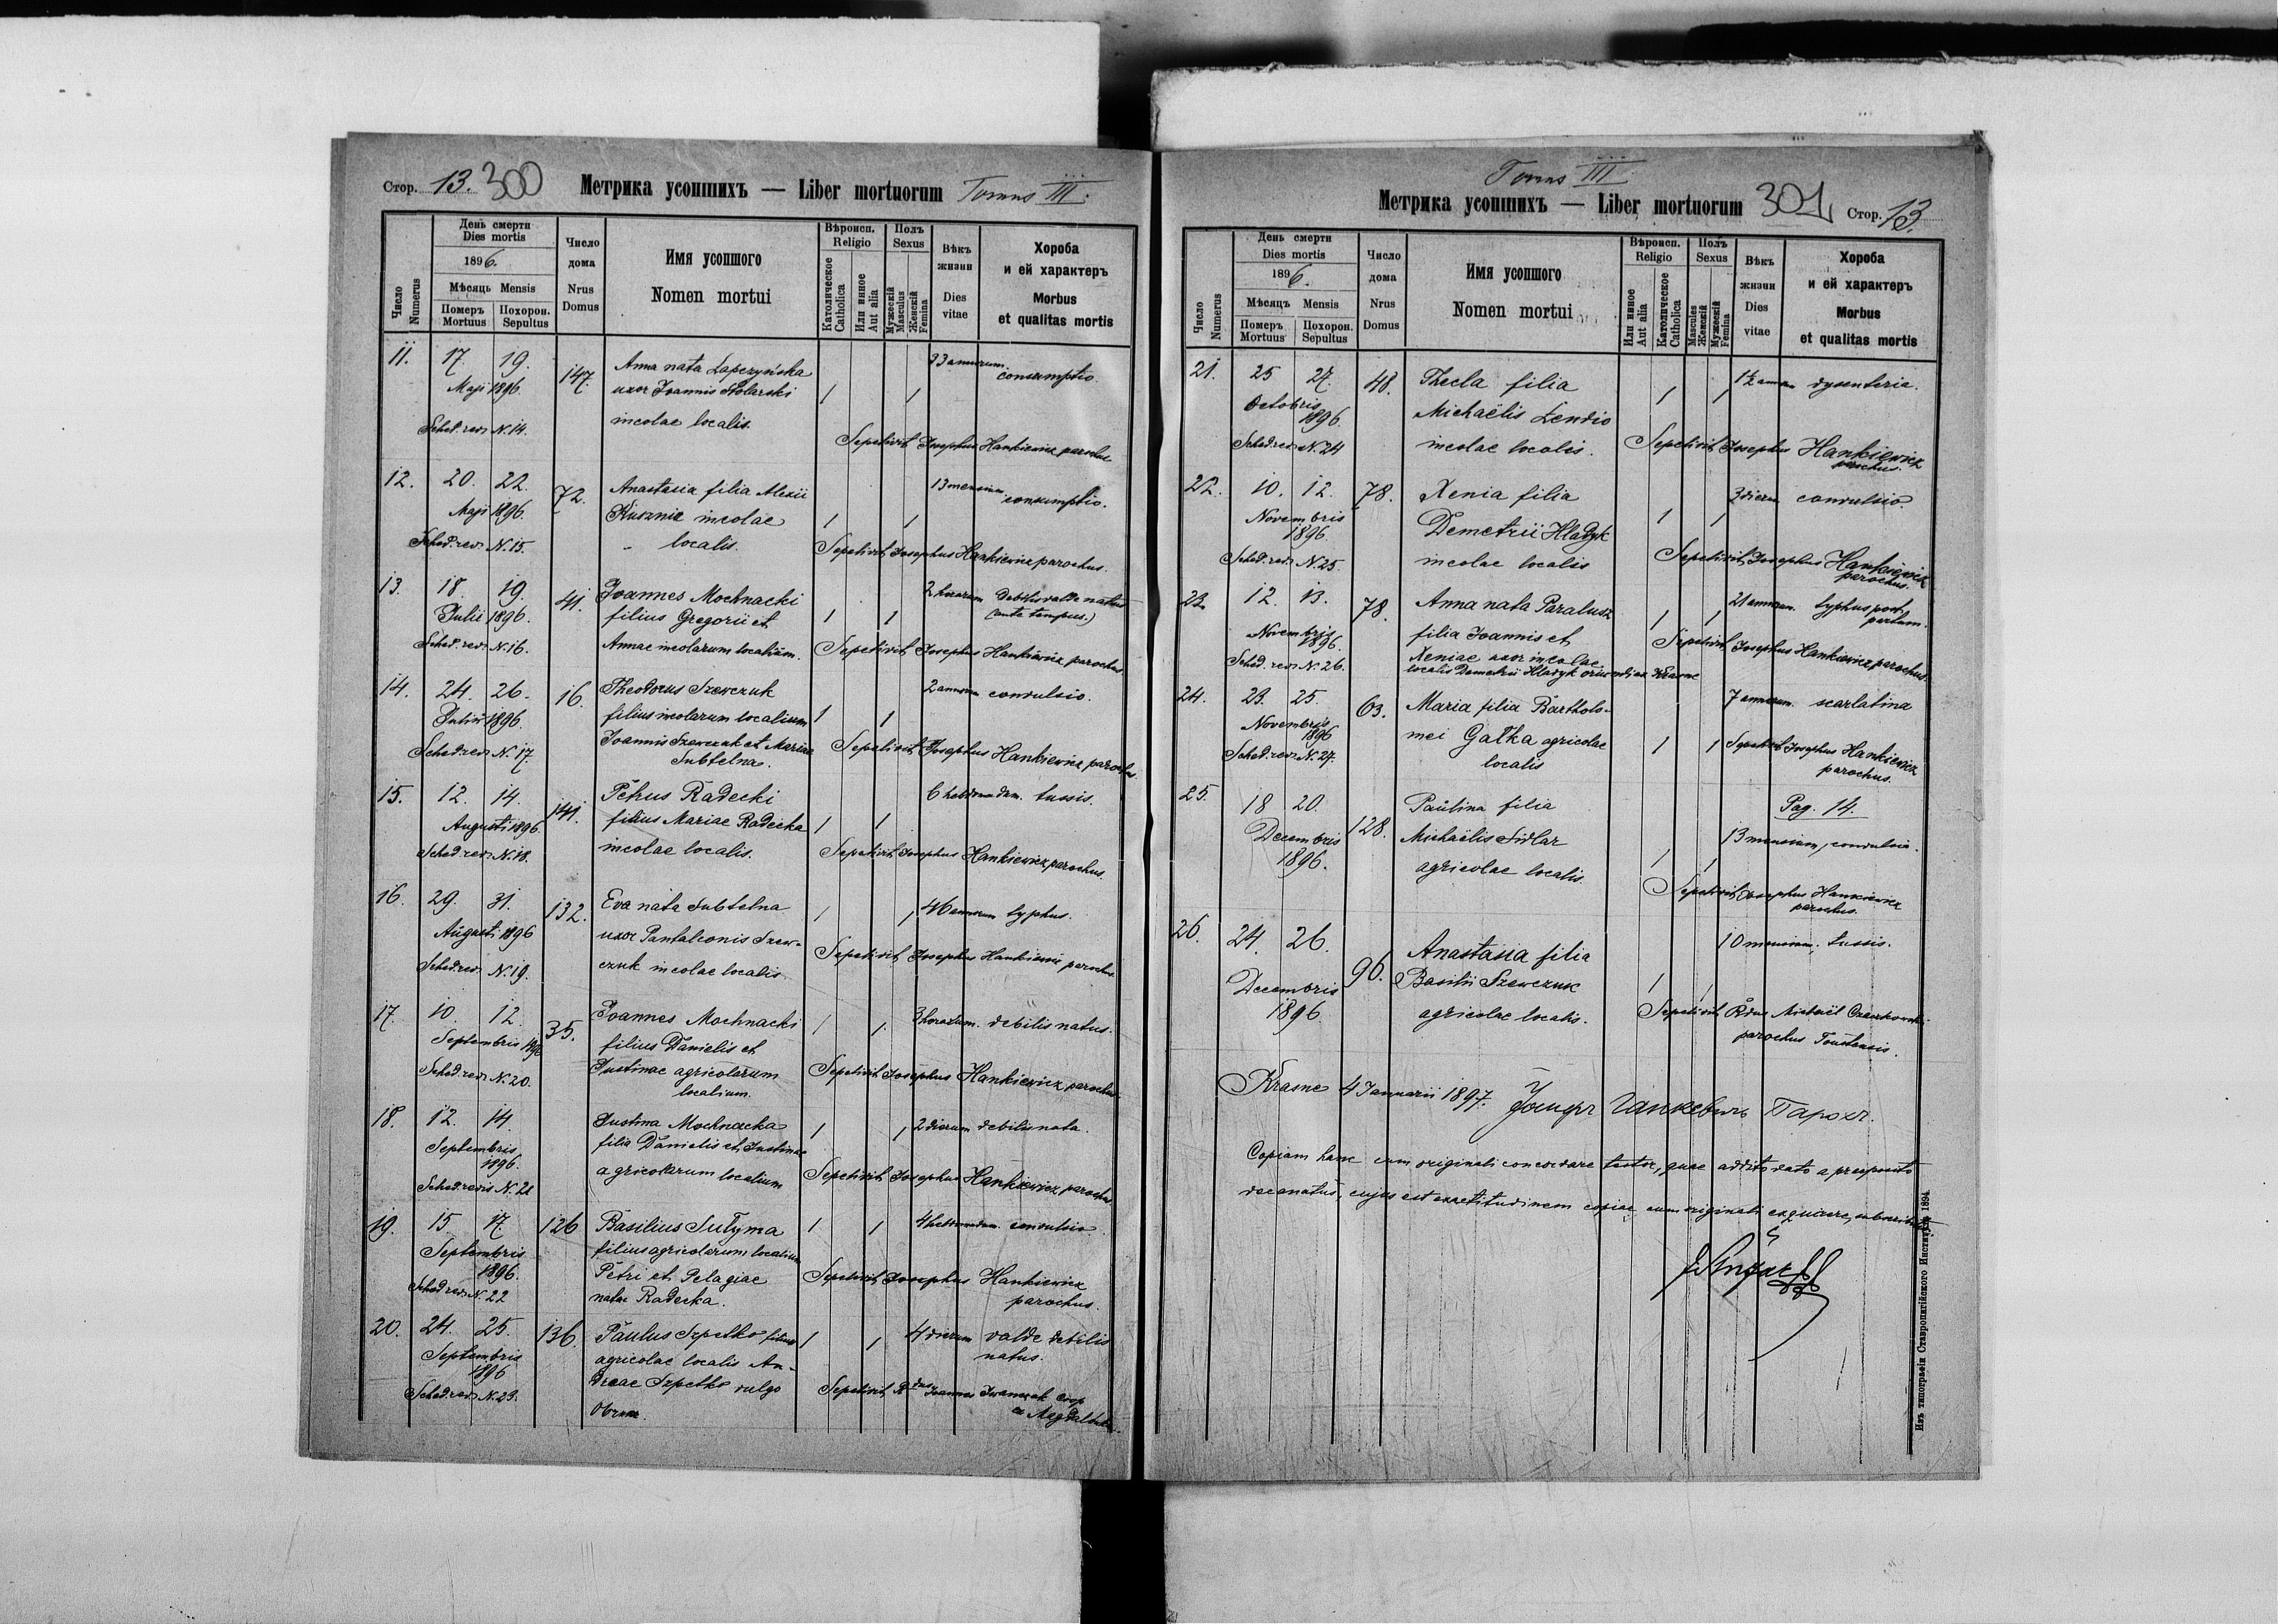 Стор. 13. 300 Метрика усопшихъ — Liber mortuorum Tomus III.
Число Numerus
День смерти Dies mortis
1896.
Мѣсяць Mensis
Померъ Mortuus Похорон. Sepultus
Число дома Nrus Domus
Имя усопшого Nomen mortui
Вѣроисп. Religio
Католическое Catholica Или инное Aut alia
Полъ Sexus
Мужескій Masculus Женскій Femina
Вѣкъ жизни Dies vitae
Хороба и ей характеръ Morbus et qualitas mortis
11. 17. 19. 147. Anna nata Łapczyńska 1 1 33 annorum. consumptio.
Maji 1896. uxor Joannis Stolarski
Sched. red. N. 14. incolae localis. Sepelivit Josephus Hankiewicz parochus
12. 20. 22. 72. Anastasia filia Alexii 1 1 13 mensium consumptio.
Maji 1896. Kusznir incolae
Sched. red. N. 15. localis. Sepelivit Josephus Hankiewicz parochus.
13. 18. 19. 41. Joannes Mochnacki 1 1 2 horarum debilis valde natus
Julii 1896. filius Gregorii et (ante tempus.)
Sched. red. N. 16. Annae incolarum localium. Sepelivit Josephus Hankiewicz parochus.
14. 24. 26. 16. Theodorus Szewczuk 1 1 2 annorum convulsio.
Julii 1896. filius incolarum localium
Sched. red. N. 17. Joannis Szewczuk et Mariae Sepelivit Josephus Hankiewicz parochus
Subtelna.
15. 12. 14. 141. Petrus Radecki 1 1 6 hebdomadum. tussis.
Augusti 1896. filius Mariae Radecka
Sched. red. N. 18. incolae localis. Sepelivit Josephus Hankiewicz parochus.
16. 29. 31. 132. Eva nata Subtelna 1 1 46 annorum typhus.
Augusti 1896 uxor Pantaleonis Szew-
Sched. red. N. 19. czuk incolae localis. Sepelivit Josephus Hankiewicz parochus.
17. 10. 12. 35. Joannes Mochnacki 1 1 3 horarum. debilis natus.
Septembris 1896 filius Danielis et
Sched. red. N. 20. Justinae agricolarum Sepelivit Josephus Hankiewicz parochus.
localium.
18. 12. 14. Justina Mochnacka 1 1 2 dierum debilis nata.
Septembris 1896. filia Danielis et Justinae
Sched. redis N. 21 agricolarum localium Sepelivit Josephus Hankiewicz parochus
19. 15. 17. 126 Basilius Sutyma 1 1 4 hebdomadum convulsio.
Septembris 1896. filius agricolarum localium
Petri et Pelagiae Sepelivit Josephus Hankiewicz
Sched. red. N. 22 natae Radecka. parochus.
20. 24. 25. 136. Paulus Szpetko filius 1 1 4 dierum valde debilis
Septembris 1896 agricolae localis An- natus.
Sched. red. N. 23. dreae Szpetko vulgo Sepelivit Rdus Joannes Iwanczuk Coop
Tomus III.
Метрика усопшихъ — Liber mortuorum 301 Стор. 13.
Число Numerus
День смерти Dies mortis
1896.
Мѣсяцъ Mensis
Померъ Mortuus Похорон. Sepultus
Число дома Nrus Domus
Имя усопшого Nomen mortui
Вѣроисп. Religio
Или инное Aut alia Католическое Catholica
Полъ Sexus
Mascules Женскій Мужескій Femina
Вѣкъ жизни Dies vitae
Хороба и ей характеръ Morbus et qualitas mortis
21. 25 27. 48. Thecla filia 1 1 1½ annorum dysenteria.
Octobris 1896. Michaëlis Lendio
Sched. red. N. 24 incolae localis. Sepelivit Josephus Hankiewicz
parochus.
22. 10. 12. 78. Xenia filia 1 1 3 dierum convulsio.
Novembris 1896. Demetrii Hladyk
Sched. red. N. 25. incolae localis Sepelivit Josephus Hankiewicz
parochus.
23. 12. 13. 78. Anna nata Paralusz 1 1 21 annorum. typhus post
Novembris 1896. filia Joannis et partum.
Sched. red. N. 26. Xeniae uxor incolae Sepelivit Josephus Hankiewicz parochus.
localis Demetrii Hladyk oriundi ex Krasne
24. 23. 25. 63. Maria filia Bartholo- 1 1 7 annorum. scarlatina
Novembris 1896 mei Gałka agricolae Sepelivit Josephus Hankiewicz
Sched. red. N. 27. localis parochus.
25. 18 20. 128. Paulina filia Pag. 14.
Decembris Michaëlis Sidlar 1 1 13 mensium, convulsio.
1896. agricolae localis. Sepelivit Josephus Hankiewicz
parochus.
26. 24. 26. 96. Anastasia filia 1 1 10 mensium, tussis.
Decembris Basilii Szewczuk
1896. agricolae localis. Sepelivit Rdus Michaël
parochus Toustensis.
Krasne 4 Januarii 1897. Йосифъ Ганкевичъ Парохъ.
Copiam hanc cum originali concordare testor, quae addito dato a praeposito
decanatus, cujus est exactitudinem copiae cum originali exquirere, subscribitur
Изъ типографіи Ставропигійского Института 1894.